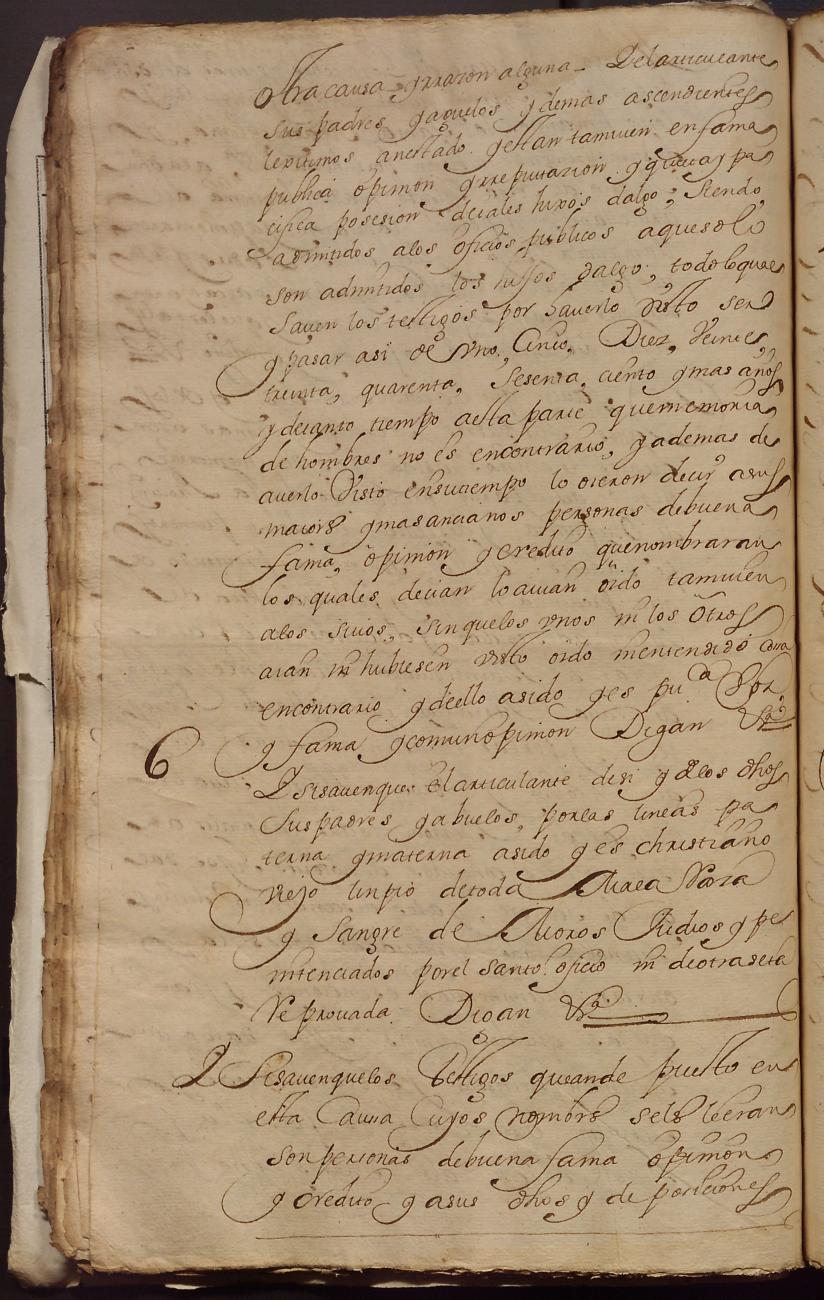 otra causa y rrazon alguna. Del articulante
sus padres y aguelos y demas ascendientes
lexitimos an estado y estan tamvien en fama
publica opinion y rreputazion y quieta y pa
cifica posesion de tales hixos dalgo, siendo
admitidos a los oficios publicos a que solo
son admitidos los hijos dalgo, todo lo qual
saven los testigos por haverlo visto ser
y pasar asi de Uno, Cinco, Diez, Veinte,
treinta, quarenta, sesenta, ciento y mas años
y de tanto tiempo a esta parte que memoria
de hombres no es en contrario, y ademas de
averlo visto en su tiempo lo oieron decir a sus
maiores y mas ancianos personas de buena
fama, opinion y credito que nombraran
los quales decian lo avian oido tamvien
a los suios, sin que los unos ni los otros
aian ni hubiesen visto oido ni entendido cosa
en contrario y de ello a sido y es pu.ca Voz
y fama y comun opinion Digan &a
6 Y si saven que el articulante de si y de los dhos
sus padres y abuelos, por las lineas pa
terna y materna a sido y es christiano
viejo linpio de toda Mala Raza
y sangre de Moros Judios y pe
nitenciados por el santo oficio ni de otra seta
Reprovada Digan &a
Y Si saven que los Testigos que an de puesto en
esta Causa Cuyos nombres se les leeran
son personas de buena fama opinion
y credito y a sus dhos y deposiciones